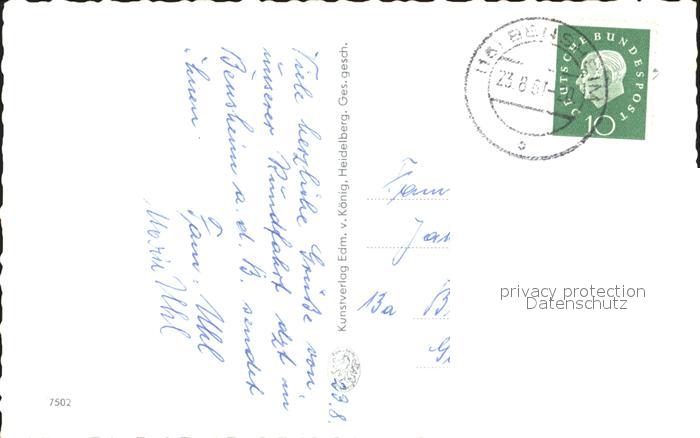 23.8.
Viele herzliche Grüße von
unserer Rundfahrt dzt in
Bensheim a. d. B. sendet
Ihnen
Fam. Uhl
Maria Uhl
Kunstverlag Edm. v. König, Heidelberg. Ges. gesch.
7502
(16) BENSHEIM
23.8.61
DEUTSCHE BUNDESPOST
10
Fam
Ja
13a B
privacy protection
Datenschutz